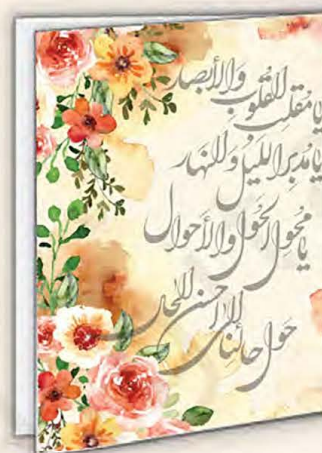 يا مقلب القلوب والأبصار
يا مدبر الليل والنهار
يا محول الحول والأحوال
حول حالنا إلى أحسن الحال